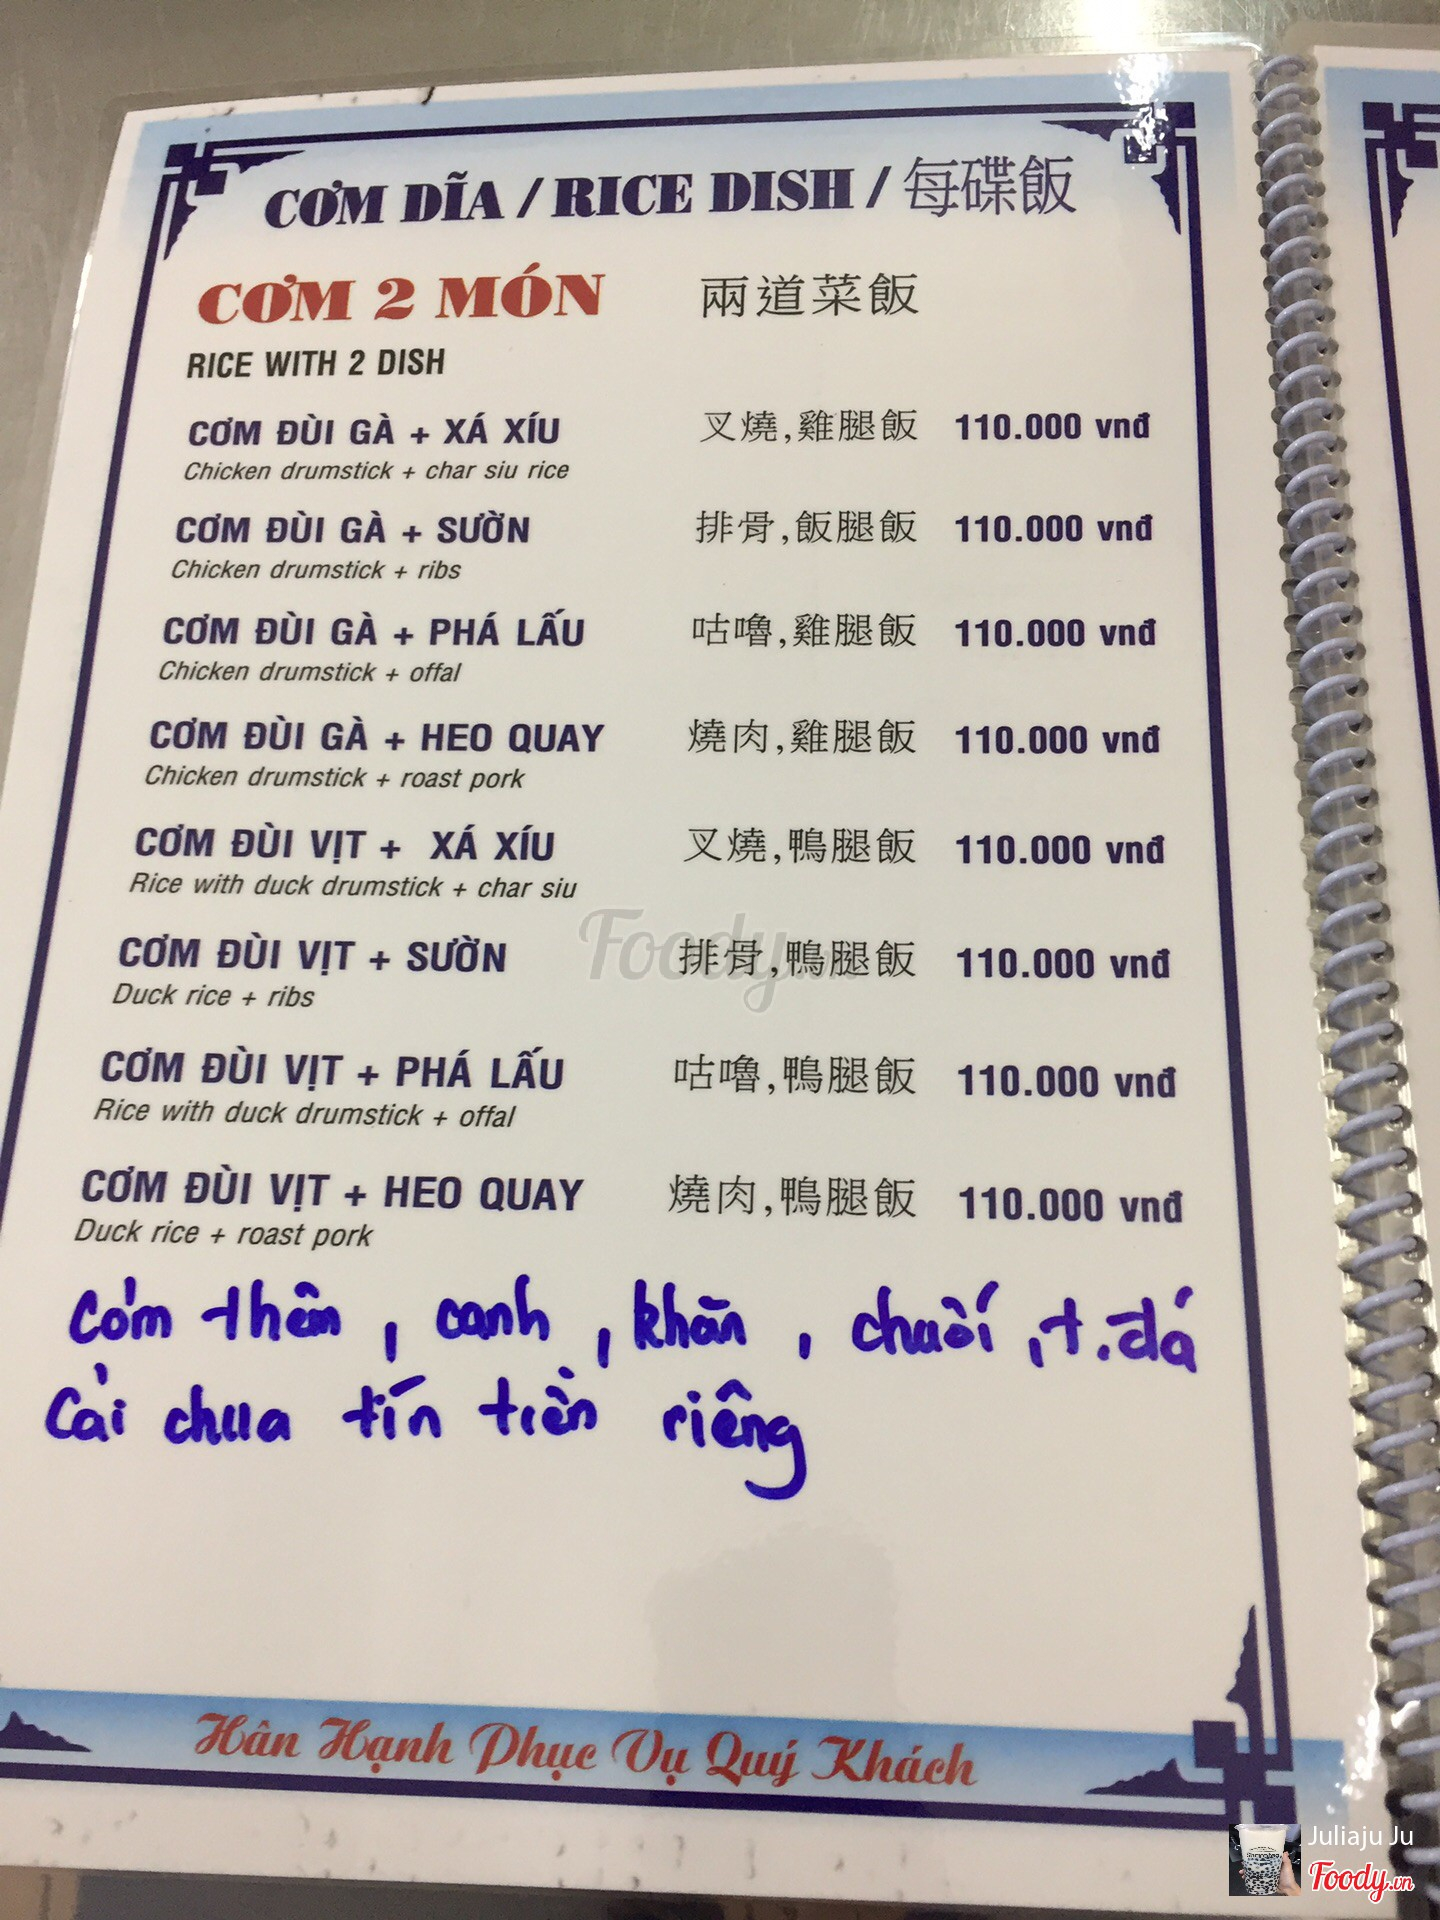 CƠM DĨA / RICE DISH / 每碟飯
CƠM 2 MÓN 兩道菜飯
RICE WITH 2 DISH
CƠM ĐÙI GÀ + XÁ XÍU 叉燒,雞腿飯 110.000 vnđ
Chicken drumstick + char siu rice
CƠM ĐÙI GÀ + SƯỜN 排骨,飯腿飯 110.000 vnđ
Chicken drumstick + ribs
CƠM ĐÙI GÀ + PHÁ LẤU 咕嚕,雞腿飯 110.000 vnđ
Chicken drumstick + offal
CƠM ĐÙI GÀ + HEO QUAY 燒肉,雞腿飯 110.000 vnđ
Chicken drumstick + roast pork
CƠM ĐÙI VỊT + XÁ XÍU 叉燒,鴨腿飯 110.000 vnđ
Rice with duck drumstick + char siu
CƠM ĐÙI VỊT + SƯỜN 排骨,鴨腿飯 110.000 vnđ
Duck rice + ribs
Foody.vn
CƠM ĐÙI VỊT + PHÁ LẤU 咕嚕,鴨腿飯 110.000 vnđ
Rice with duck drumstick + offal
CƠM ĐÙI VỊT + HEO QUAY 燒肉,鴨腿飯 110.000 vnđ
Duck rice + roast pork
Cơm thêm, canh, khăn, chuối, t.đá
Cải chua tín tiền riêng
Hân Hạnh Phục Vụ Quý Khách
Juliaju Ju
Foody.vn